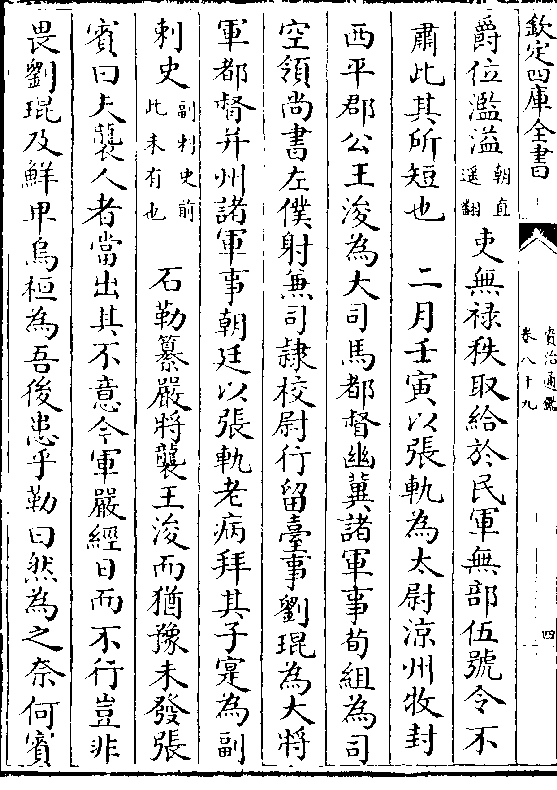 欽定四庫全書
資治通鑑
卷八十九
四
爵位濫溢朝直遥翻吏無禄秩取給於民軍無部伍號令不
肅此其所短也　二月壬寅以張軌為太尉涼州牧封
西平郡公王浚為大司馬都督幽冀諸軍事荀組為司
空領尚書左僕射兼司隷校尉行留臺事劉琨為大將
軍都督并州諸軍事朝廷以張軌老病拜其子寔為副
刺史副刺史前此未有也　石勒纂嚴將襲王浚而猶豫未發張
賓曰夫襲人者當出其不意今軍嚴經日而不行豈非
畏劉琨及鮮卑烏桓為吾後患乎勒曰然為之奈何賓